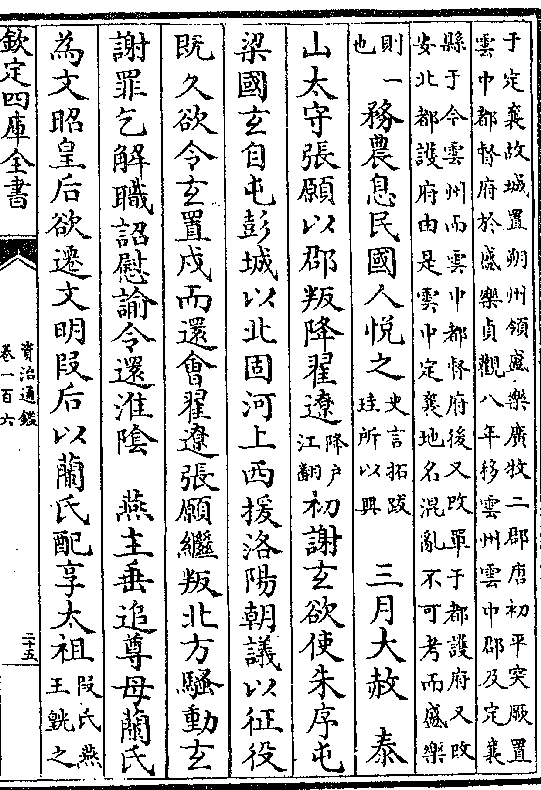 于定襄故城置朔州領盛樂廣牧二郡唐初平突厥置
雲中郡督府於盛樂貞觀八年移雲州雲中郡及定襄
縣于今雲州而雲中都督府後又改單于都護府又改
安北都護府由是雲中定襄地名混亂不可考而盛樂
則
也
一務農息民國人悦之
史言拓跋
珪所以興
三月大赦 泰
山太守張願以郡叛降翟遼
降户
江翻
初謝玄欲使朱序屯
梁國玄自屯彭城以北固河上西援洛陽朝議以征役
既久欲令玄置戍而還會翟遼張願繼叛北方騷動玄
謝罪乞解職詔慰諭令還淮陰 燕主垂追尊母蘭氏
為文昭皇后欲遷文明段后以蘭氏配享太祖
段氏燕
王皝之
欽定四庫全書
資治通鑑
卷一百六
二十五